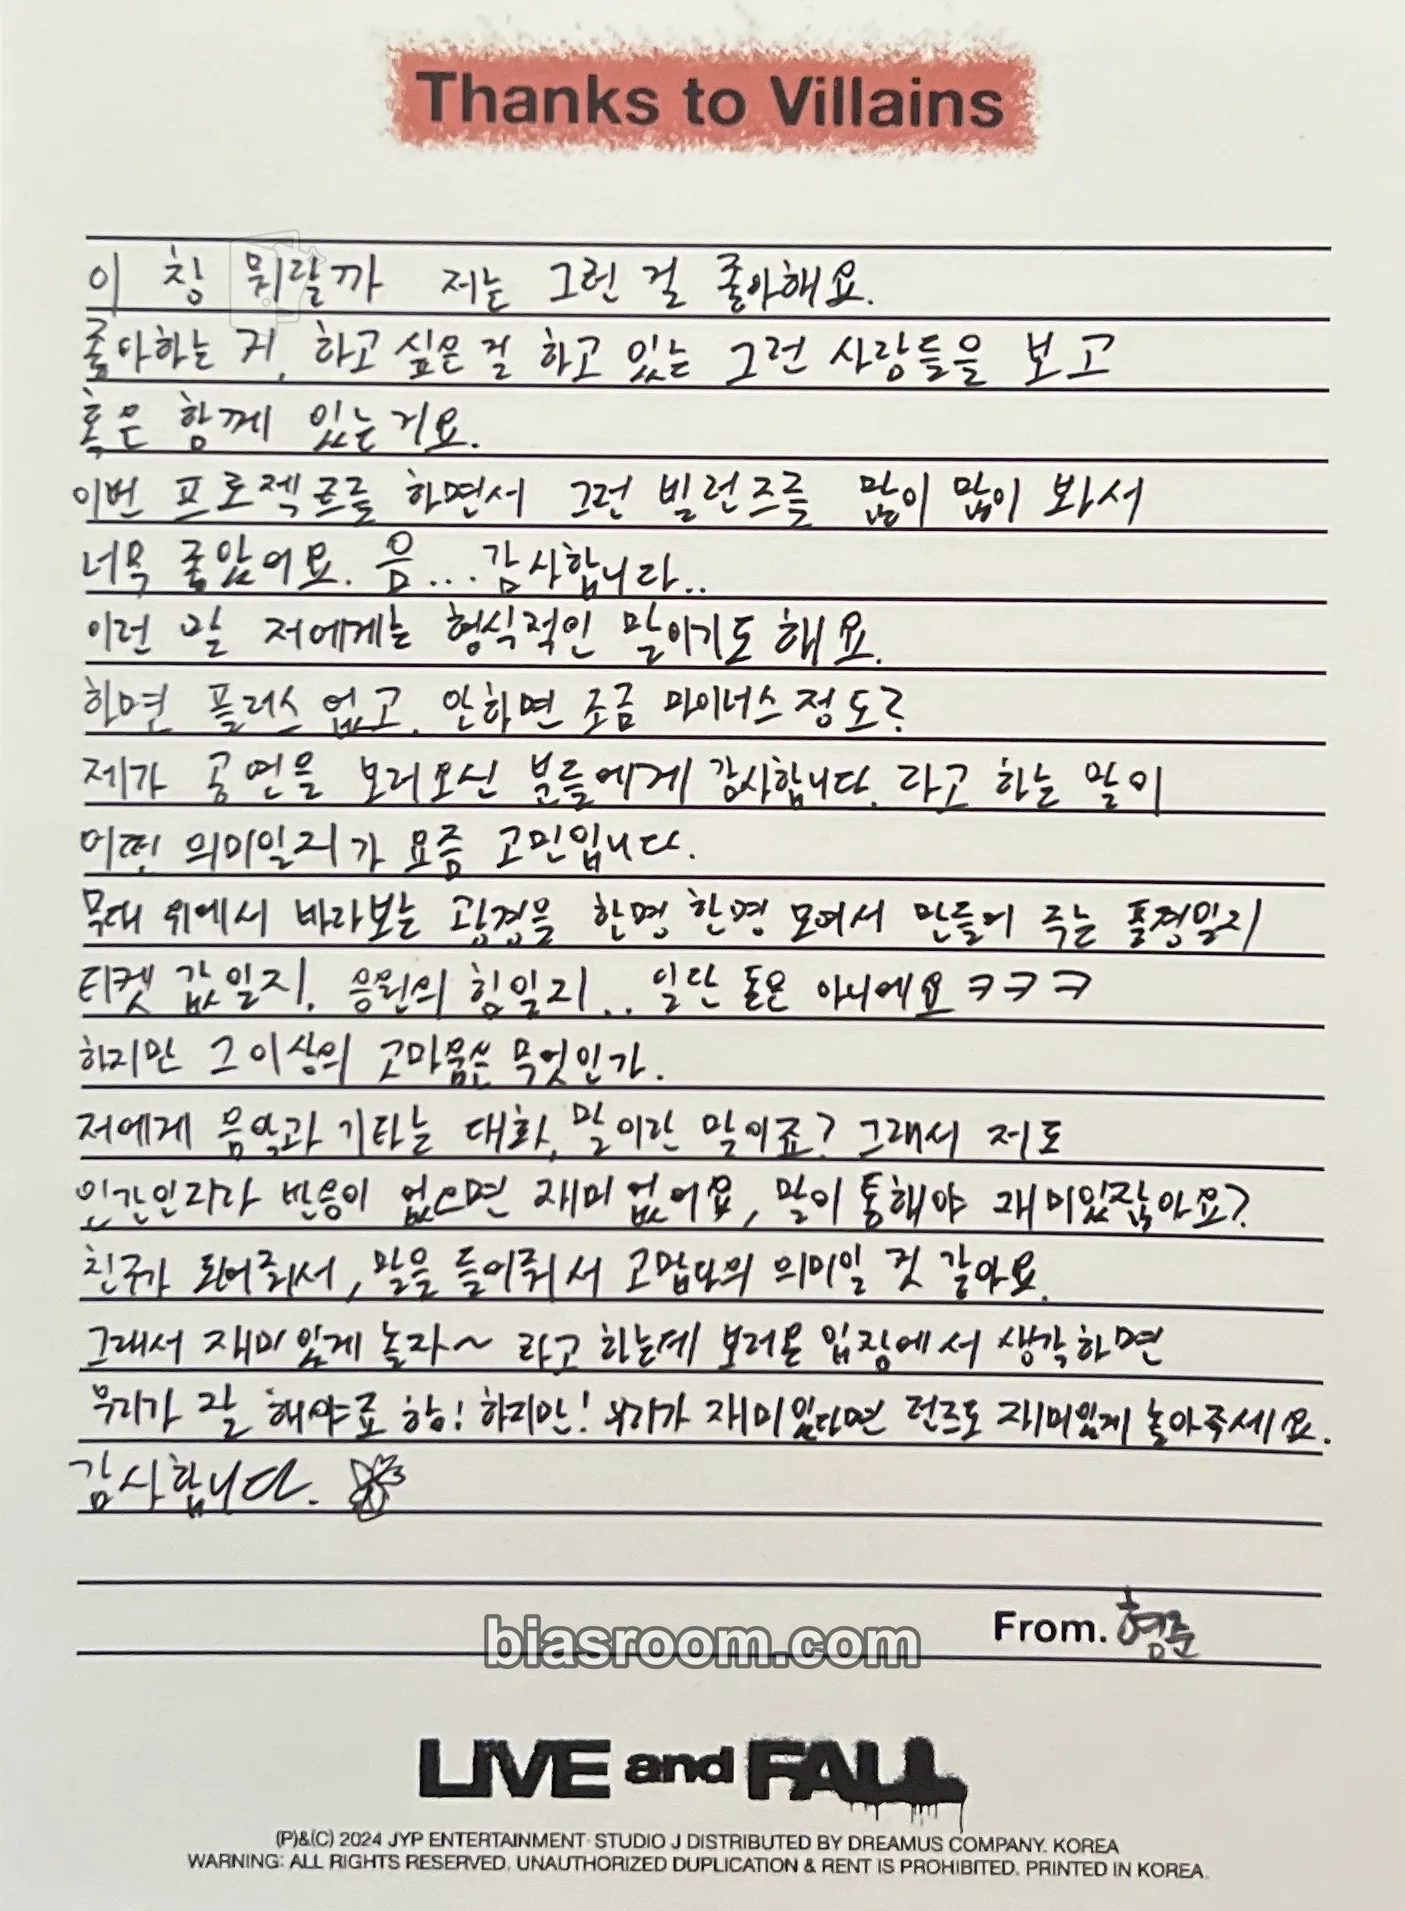 Thanks to Villains
이 참 뭐랄까 저는 그런 걸 좋아해요.
좋아하는 거, 하고 싶은 걸 하고 있는 그런 사람들을 보고
혹은 함께 있는거요.
이번 프로젝트를 하면서 그런 빌런즈를 많이 많이 봐서
너무 좋았어요. 음... 감사합니다..
이런 말 저에게는 형식적인 말이기도 해요.
하면 플러스 없고, 안하면 조금 마이너스 정도?
제가 공연을 보러오신 분들에게 감사합니다. 라고 하는 말이
어떤 의미일지가 요즘 고민입니다.
무대 위에서 바라보는 광경을 한명 한명 모여서 만들어 주는 풍경일지
티켓 값일지, 응원의 힘일지.. 일단 돈은 아니에요 ㅋㅋㅋ
하지만 그 이상의 고마움은 무엇인가.
저에게 음악과 기타는 대화, 말이란 말이죠? 그래서 저도
인간인지라 반응이 없으면 재미없어요, 말이 통해야 재미있잖아요?
친구가 되어줘서, 말을 들어줘서 고맙다의 의미일 것 같아요.
그래서 재미있게 놀자~ 라고 하는데 보러온 입장에서 생각하면
우리가 잘 해야죠 함! 하지만! 우리가 재미있다면 런즈도 재미있게 놀아주세요.
감사합니다.
From. 형준
biasroom.com
LIVE and FALL
(P)&(C) 2024 JYP ENTERTAINMENT· STUDIO J DISTRIBUTED BY DREAMUS COMPANY. KOREA
WARNING: ALL RIGHTS RESERVED. UNAUTHORIZED DUPLICATION & RENT IS PROHIBITED. PRINTED IN KOREA.